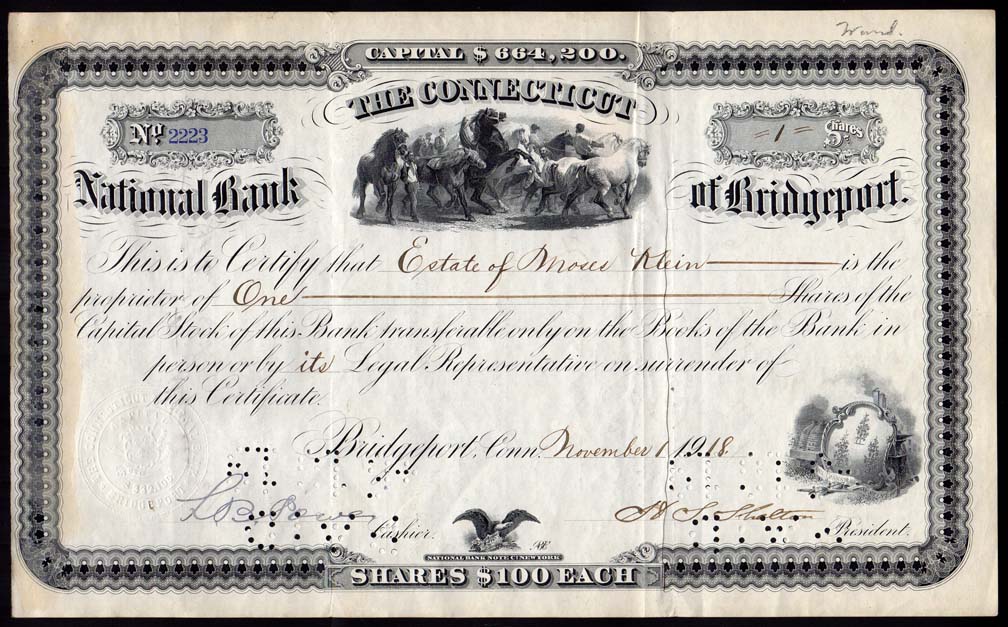 Ward.
CAPITAL $664,200.
THE CONNECTICUT
No. 2223
=1= Shares
National Bank of Bridgeport.
This is to Certify that Estate of Moses Klein is the
proprietor of One Shares of the
Capital Stock of this Bank transferable only on the Books of the Bank in
person or by its Legal Representative on surrender of
this Certificate.
Bridgeport, Conn. November 1 1918.
Cashier.
H. S. Shelton President.
NATIONAL BANK NOTE CO. NEW YORK
SHARES $100 EACH